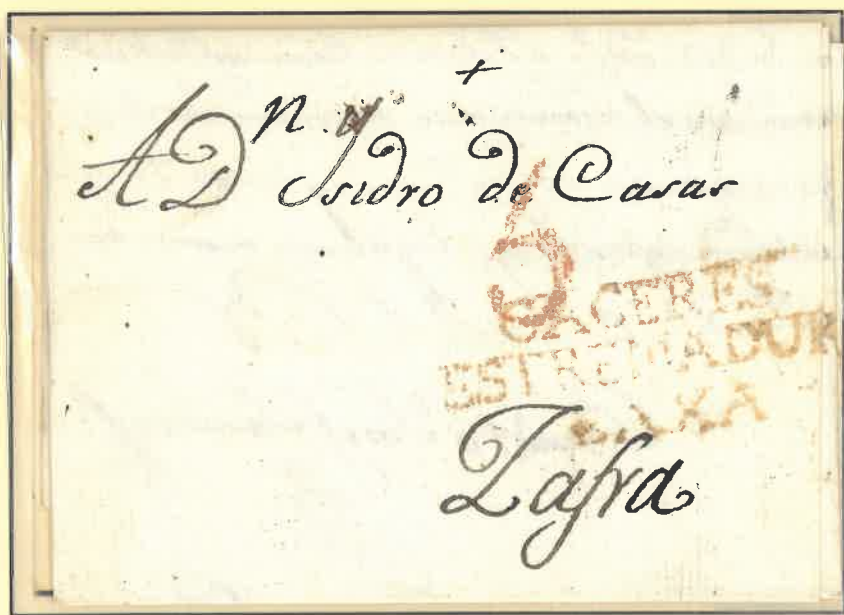 +
A Dn. Isidro de Casas
6
CACERES
ESTREMADUR
BAXA
Zafra